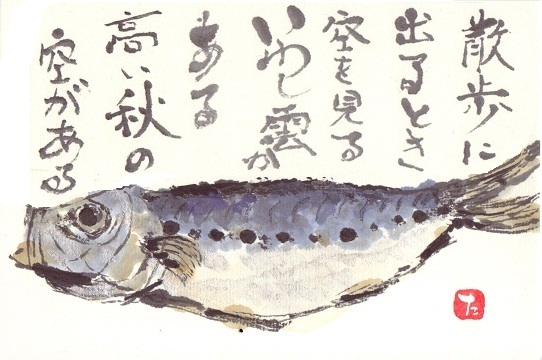 散歩に
出るとき
空を見る
いわし雲が
ある
高い秋の
空がある
た